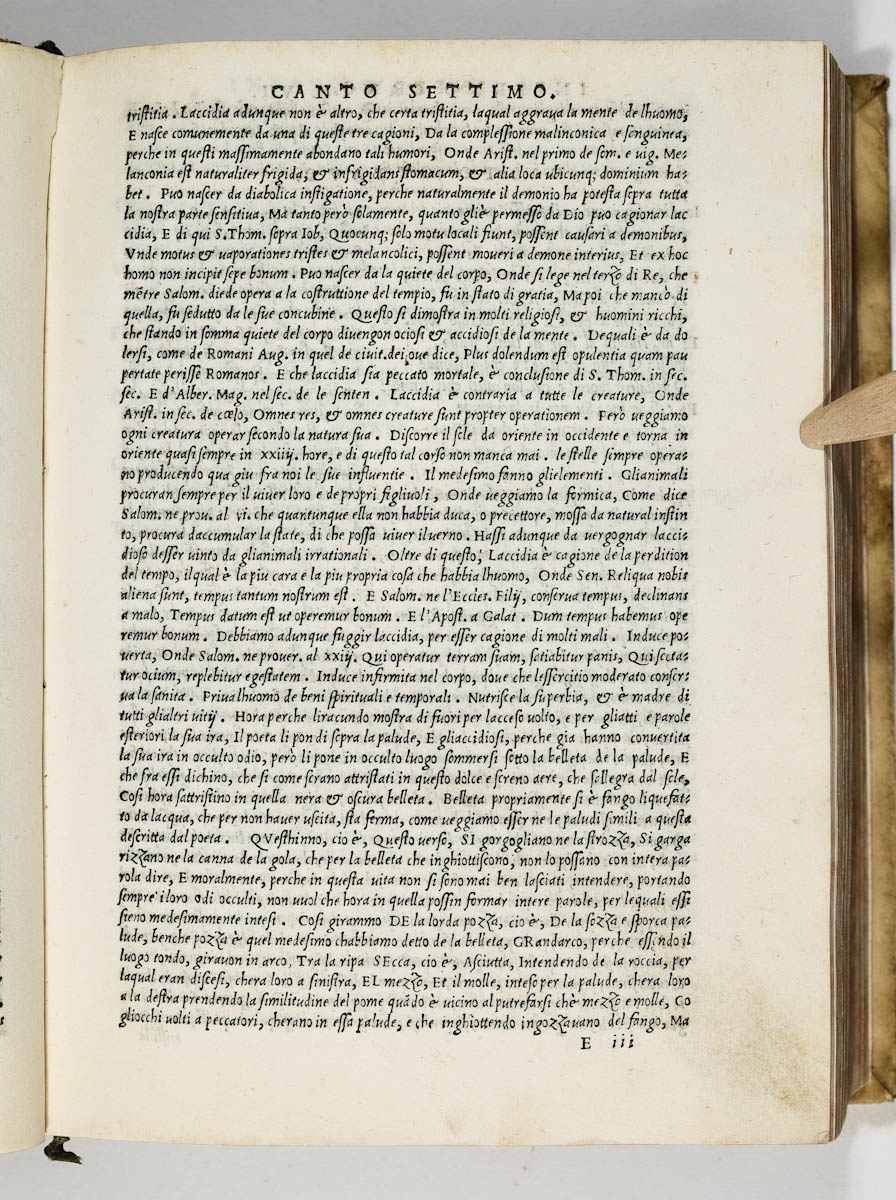 CANTO SETTIMO.
tristitia. Laccidia adunque non è altro, che certa tristitia, laqual aggraua la mente de lhuomo,
E nasce comunemente da una di queste tre cagioni, Da la complessione malinconica e sanguinea,
perche in questi massimamente abondano tali humori, Onde Arist. nel primo de som. e uig. Me-
lanconia est naturaliter frigida, & infrigidans stomacum, & alia loca ubicunq; dominium ha-
bet. Puo nascer da diabolica instigatione, perche naturalmente il demonio ha potesta sopra tutta
la nostra parte sensitiua, Ma tanto però solamente, quanto gliè permesso da Dio puo cagionar lac
cidia, E di qui S.Thom. sopra Iob, Quocunq; solo motu locali fiunt, possent causari a demonibus,
Vnde motus & uaporationes tristes & melancolici, possent moueri a demone interius, Et ex hoc
homo non incipit sepe bonum. Puo nascer da la quiete del corpo, Onde si lege nel terzo di Re, che
mẽtre Salom. diede opera a la costruttione del tempio, fu in stato di gratia, Ma poi che manco di
quella, fu sedutto da le sue concubine. Questo si dimostra in molti religiosi, & huomini ricchi,
che stando in somma quiete del corpo diuengon ociosi & accidiosi de la mente. Dequali è da do
lersi, come de Romani Aug. in quel de ciuit.dei oue dice, Plus dolendum est opulentia quam pau
pertate perisse Romanos. E che laccidia sia peccato mortale, è conclusione di S. Thom. in sec.
sec. E d'Alber. Mag. nel sec. de le senten. Laccidia è contraria a tutte le creature, Onde
Arist. in sec. de cœlo, Omnes res, & omnes creature sunt propter operationem. Però ueggiamo
ogni creatura operar secondo la natura sua. Discorre il sole da oriente in occidente e torna in
oriente quasi sempre in xxiiij. hore, e di questo tal corso non manca mai. le stelle sempre opera-
no producendo qua giu fra noi le sue influentie. Il medesimo fanno glielementi. Glianimali
procuran sempre per il uiuer loro e de propri figliuoli, Onde ueggiamo la formica, Come dice
Salom. ne prou. al vi. che quantunque ella non habbia duca, o precettore, mossa da natural instin
to, procura daccumular la state, di che possa uiuer il uerno. Hassi adunque da uergognar lacci-
dioso desser uinto da glianimali irrationali. Oltre di questo, Laccidia è cagione de la perdition
del tempo, ilqual è la piu cara e la piu propria cosa che habbia lhuomo, Onde Sen. Reliqua nobis
aliena sunt, tempus tantum nostrum est. E Salom. ne l'Eccles. Filij, conserua tempus, declinans
a malo, Tempus datum est ut operemur bonum. E l'Apost. a Galat. Dum tempus habemus ope
remur bonum. Debbiamo adunque fuggir laccidia, per esser cagione di molti mali. Induce po-
uerta, Onde Salom. ne prouer. al xxiij. Qui operatur terram suam, satiabitur panis, Qui secta-
tur ocium, replebitur egestatem. Induce infirmita nel corpo, doue che lessercitio moderato conser-
ua la sanita. Priua lhuomo de beni spirituali e temporali. Nutrisce la superbia, & è madre di
tutti glialtri uitij. Hora perche liracundo mostra di fuori per lacceso uolto, e per gliatti e parole
esteriori la sua ira, Il poeta li pon di sopra la palude, E gliaccidiosi, perche gia hanno conuertita
la sua ira in occulto odio, però li pone in occulto luogo sommersi sotto la belleta de la palude, E
che fra essi dichino, che si come serano attristati in questo dolce e sereno aere, che sallegra dal sole,
Cosi hora sattristino in quella nera & oscura belleta. Belleta propriamente si è fango liquefat-
to da lacqua, che per non hauer uscita, sta ferma, come ueggiamo esser ne le paludi simili a questa
descritta dal poeta. QVesthinno, cio è, Questo verso, SI gorgogliano ne la strozza, Si garga
rizzano ne la canna de la gola, che per la belleta che inghiottiscono, non lo possano con intera pa-
rola dire, E moralmente, perche in questa vita non si sono mai ben lasciati intendere, portando
sempre i loro odi occulti, non uuol che hora in quella possin formar intere parole, per lequali essi
sieno medesimamente intesi. Cosi girammo DE la lorda pozza, cio è, De la sozza e sporca pa-
lude, benche pozza è quel medesimo chabbiamo detto de la belleta, GRandarco, perche essendo il
luogo tondo, girauon in arco, Tra la ripa SEcca, cio è, Asciutta, Intendendo de la roccia, per
laqual eran discesi, chera loro a sinistra, EL mezzo, Et il molle, inteso per la palude, chera loro
a la destra prendendo la similitudine del pome quãdo è uicino al putrefarsi chè mezzo e molle, Co
gliocchi uolti a peccatori, cherano in essa palude, e che inghiottendo ingozzauano del fango, Ma
E iii